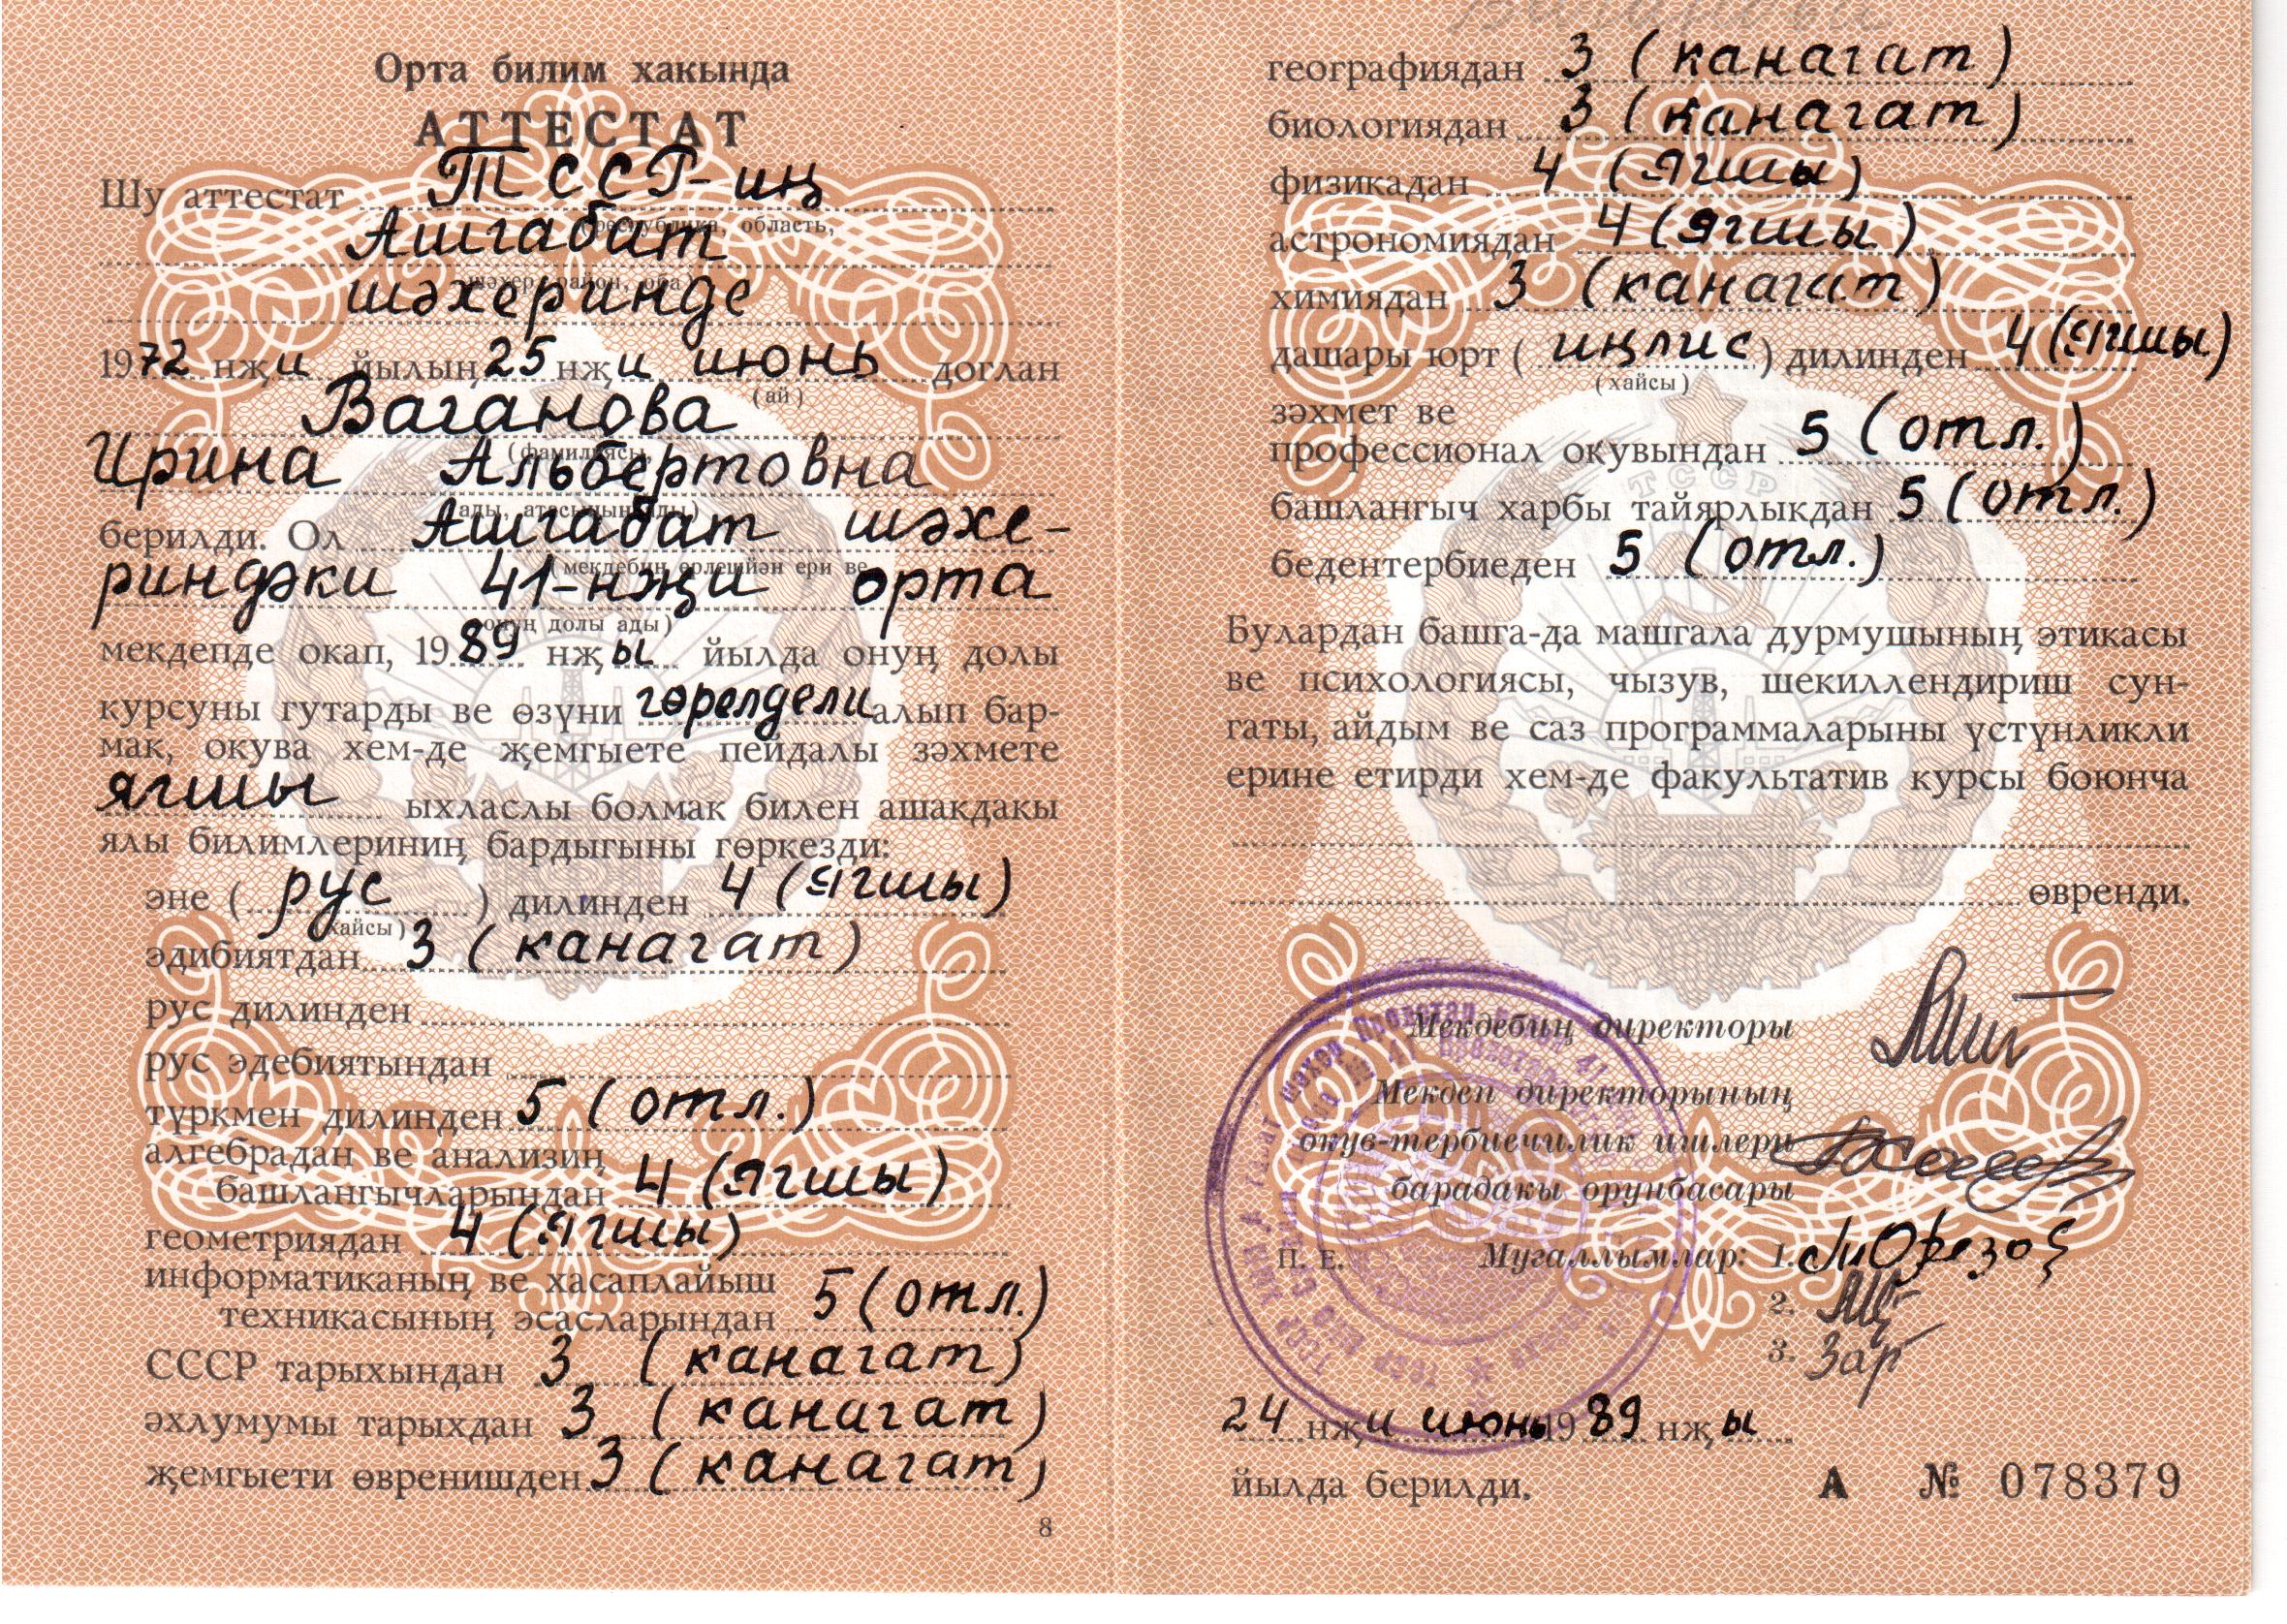 Орта билим хакында
АТТЕСТАТ
Шу аттестат ТССР-иң
(республика, область,
Ашгабат
шәхер, район, оба)
шәхеринде
1972 нҗи йылың 25 нҗи июнь доглан
(ай)
Ваганова
(фамилиясы,
Ирина Альбертовна
ады, атасының ады)
берилди. Ол Ашгабат шәхе-
(мекдебиң ерлешйән ери ве
риндәки 41-нҗи орта
онуң долы ады)
мекдепде окап, 1989 нҗы йылда онуң долы
курсуны гутарды ве өзүни гөрелдели алып бар-
мак, окува хем-де җемгыете пейдалы зәхмете
ягшы ыхласлы болмак билен ашакдакы
ялы билимлериниң бардыгыны гөркезди:
эне (рус) дилинден 4 (ягшы)
(хайсы)
эдибиятдан 3 (канагат)
рус дилинден
рус эдебиятындан
түркмен дилинден 5 (отл.)
алгебрадан ве анализиң
башлангычларындан 4 (ягшы)
геометриядан 4 (ягшы)
информатиканың ве хасаплайыш
техникасының эсасларындан 5 (отл.)
СССР тарыхындан 3 (канагат)
әхлумумы тарыхдан 3 (канагат)
җемгыети өвренишден 3 (канагат)
8
Ваганова
географиядан 3 (канагат)
биологиядан 3 (канагат)
физикадан 4 (ягшы)
астрономиядан 4 (ягшы)
химиядан 3 (канагат)
дашары юрт (иңлис) дилинден 4 (ягшы)
(хайсы)
зәхмет ве
профессионал окувындан 5 (отл.)
ТССР
башлангыч харбы тайярлыкдан 5 (отл.)
бедентербиеден 5 (отл.)
Булардан башга-да машгала дурмушының этикасы
ве психологиясы, чызув, шекиллендириш сун-
гаты, айдым ве саз программаларыны үстүнликли
ерине етирди хем-де факультатив курсы боюнча
өвренди.
Мекдебиң директоры
Мекдеп директорының
окув-тербиечилик ишлери
барадакы орунбасары
П. Е. Мугаллымлар: 1.
2.
3.
24 нҗи июнь 1989 нҗы
йылда берилди.
А № 078379